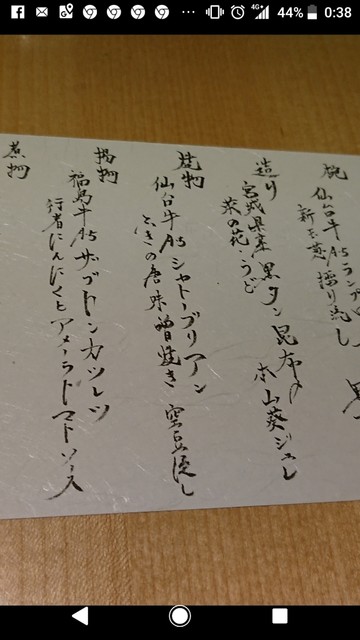 44% 0:38
4G
椀
仙台牛A5ランプ
新玉葱 擦り流し
造り
宮城県産 黒タン 昆布〆
菜の花・うど 本山葵ジュレ
焼物
仙台牛A5シャトーブリアン
ふきの唐味噌焼き 空豆浸し
揚物
福島牛A5ザブトンカツレツ
行者にんにくとアメーラトマトソース
煮物